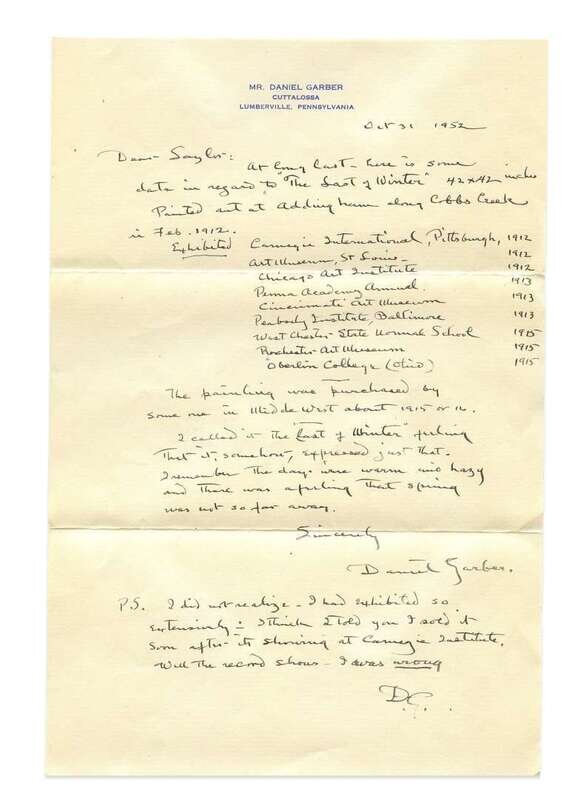 MR. DANIEL GARBER
CUTTALOSSA
LUMBERVILLE, PENNSYLVANIA
Oct 31 1952
Dear Saylor:
At long last - here is some
data in regard to "The Last of Winter" 42x42 inches
Painted out at Addingham along Cobbs Creek
in Feb. 1912.
Exhibited Carnegie International, Pittsburgh, 1912
Art Museum, St Louis - 1912
Chicago Art Institute 1912
Penna Academy Annual. 1913
Cincinnati Art Museum 1913
Peabody Institute, Baltimore 1913
West Chester State Normal School 1915
Rochester Art Museum 1915
Oberlin College (Ohio) 1915
The painting was purchased by
some one in Midde West about 1915 or 16.
I called it the "Last of Winter" feeling
that it, somehow, expressed just that.
I remember the days were warm and hazy
and there was a feeling that spring
was not so far away.
Sincerely
Daniel Garber.
P.S. I did not realize - I had exhibited so
extensively - I think I told you I sold it
soon after its showing at Carnegie Institute.
Well the record shows - I was wrong
D.G.